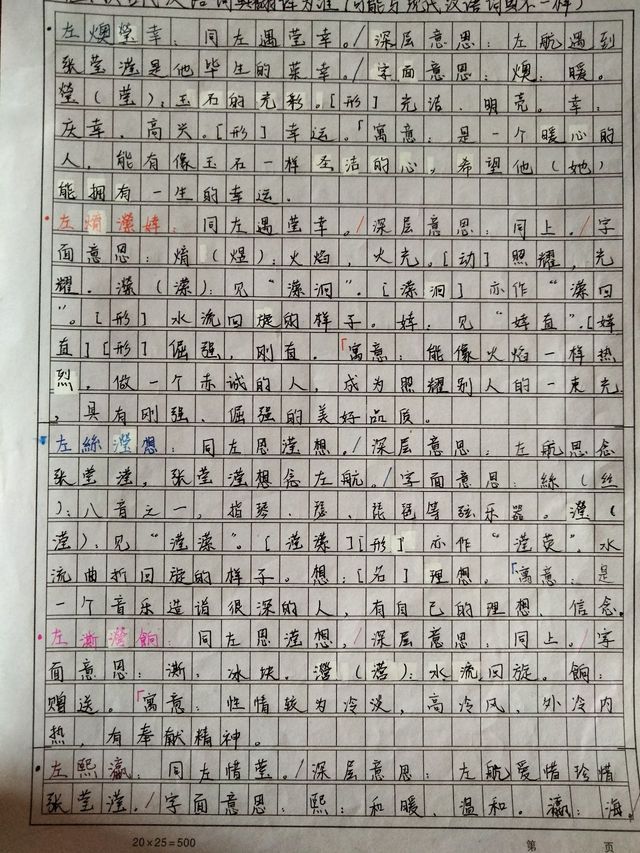 古代汉语词典翻译为准（可能与现代汉语词典不一样）
左燠瑩幸：同左遇莹幸。/深层意思：左航遇到
张莹滢是他毕生的荣幸。/字面意思：燠：暖。
瑩（莹）：玉石的光彩。[形]光洁、明亮。幸：
庆幸，高兴。[形]幸运。「寓意：是一个暖心的
人，能有像玉石一样圣洁的心，希望他（她）
能拥有一生的幸运。
左焴瀠婞：同左遇莹幸。/深层意思：同上。/字
面意思：焴（煜）：火焰，火光。[动]照耀，光
耀。瀠（潆）：见“潆洄”。[潆洄]亦作“潆回
”。[形]水流回旋的样子。婞：见“婞直”.[婞
直][形]倔强，刚直。「寓意：能像火焰一样热
烈，做一个赤诚的人，成为照耀别人的一束光
，具有刚强、倔强的美好品质。
左絲瀅想：同左思滢想。/深层意思：左航思念
张莹滢，张莹滢想念左航。/字面意思：絲（丝
）：八音之一，指琴、瑟、琵琶等弦乐器。瀅（
滢）：见“滢潆”。[滢潆][形]亦作“滢荧”.水
流曲折回旋的样子。想：[名]理想。「寓意：是
一个音乐造诣很深的人，有自己的理想、信念。
左澌灐餉：同左思滢想，/深层意思：同上。/字
面意思：澌，冰块。灐（㵢）：水流回旋。餉：
赠送。「寓意：性情较为冷淡，高冷风，外冷内
热，有奉献精神。
左熙瀛：同左惜莹。/深层意思：左航爱惜珍惜
张莹滢。/字面意思：熙：和暖，温和。瀛：海。
20×25=500
第 页